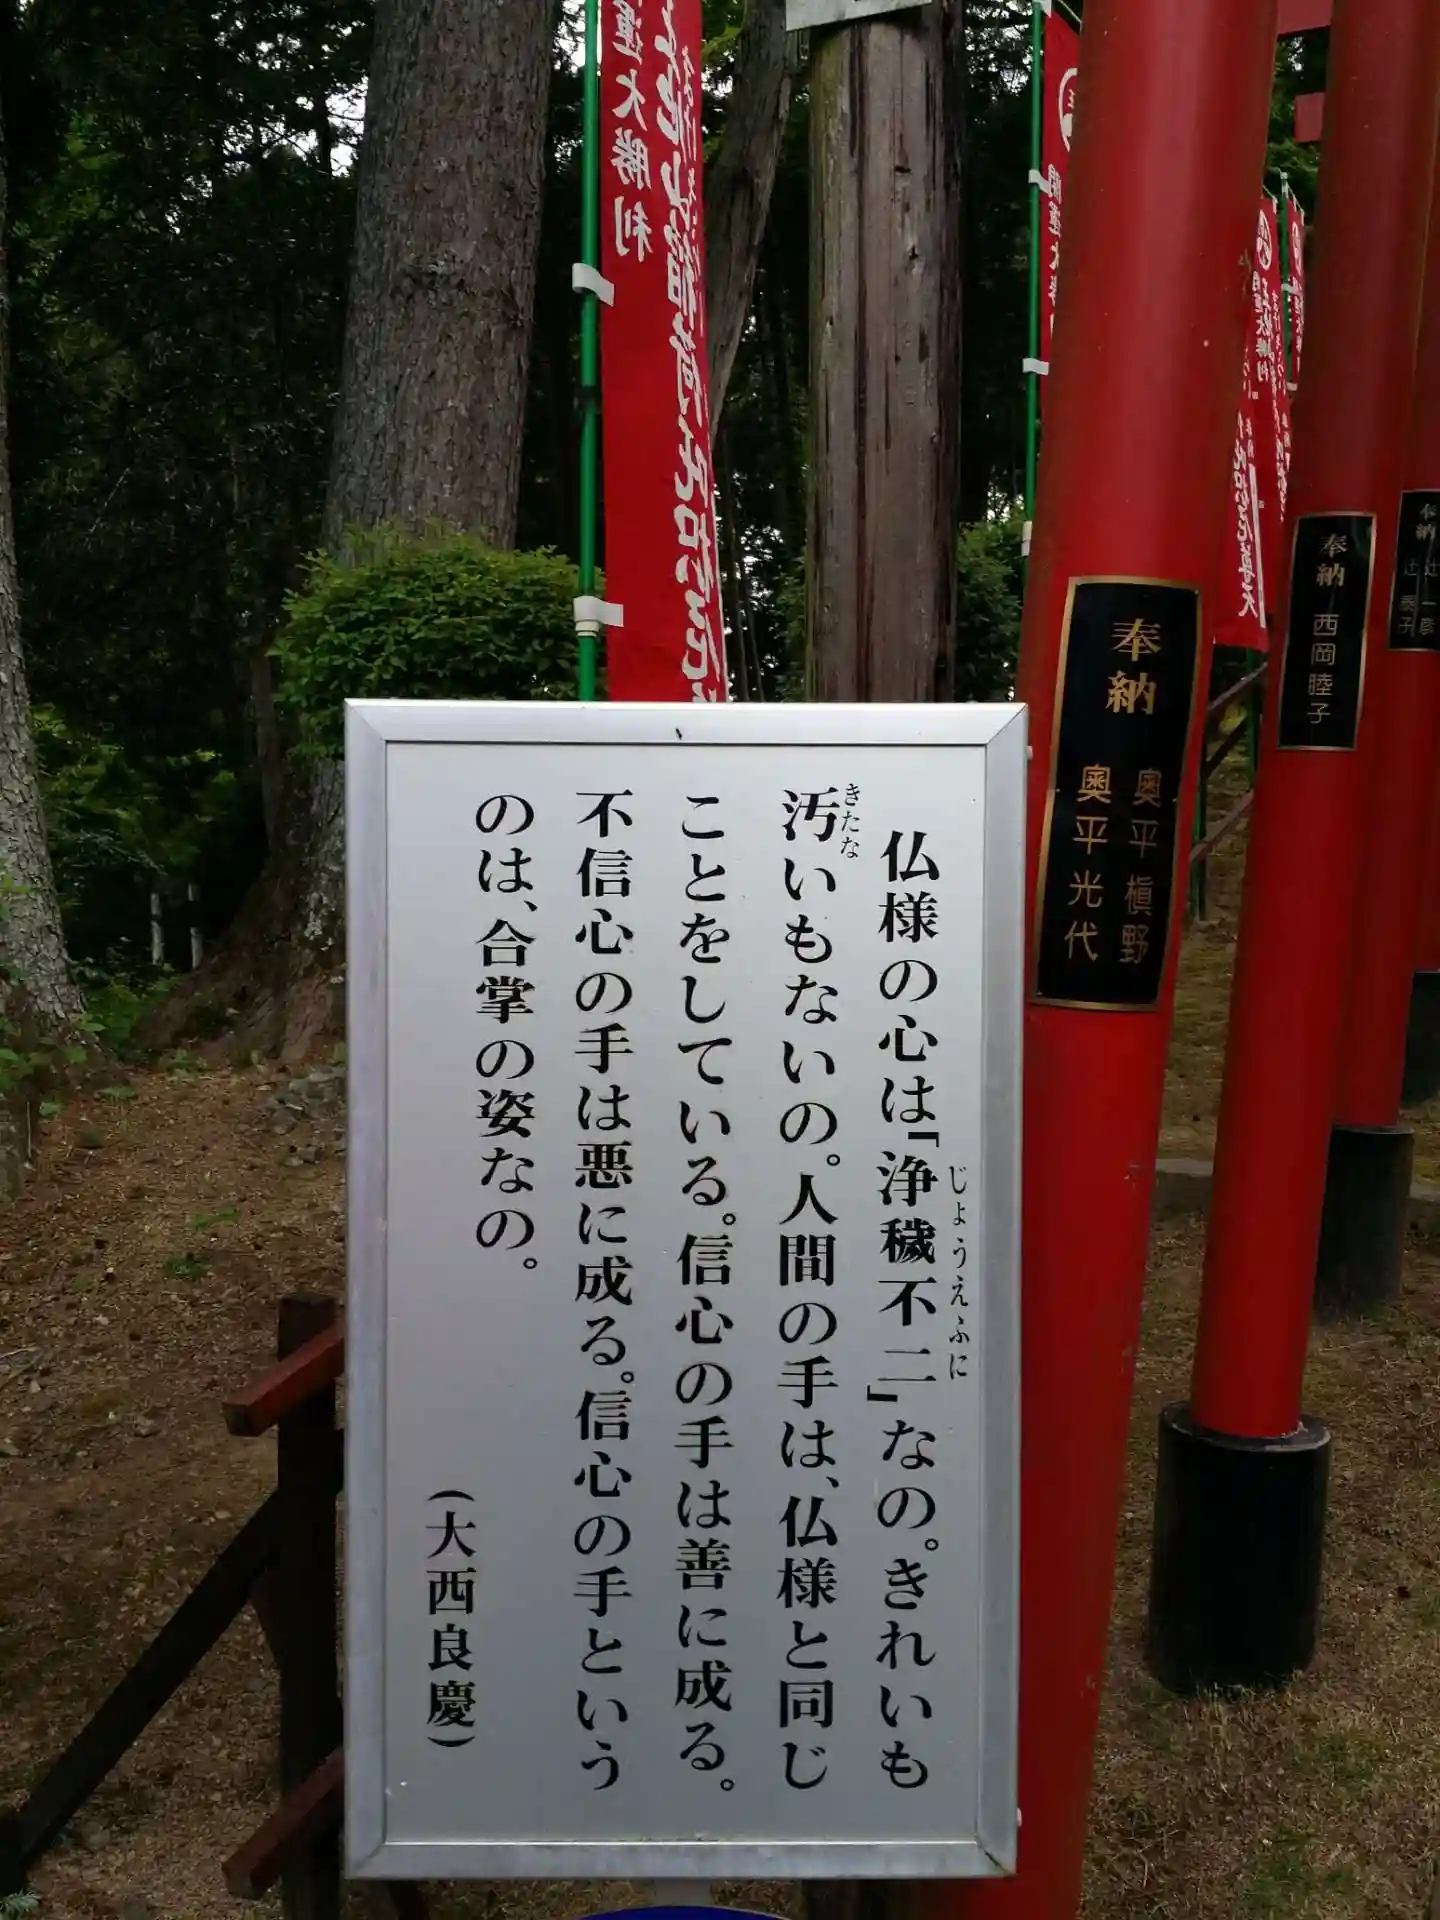 仏様の心は「浄穢不二」なの。きれいも
じょうえふに
汚いもないの。人間の手は、仏様と同じ
きたな
ことをしている。信心の手は善に成る。
不信心の手は悪に成る。信心の手という
のは、合掌の姿なの。
(大西良慶)
奉納
奥平槇野
奥平光代
奉納
西岡睦子
奉納
辻一彦
運大勝利
山稲荷
開運大